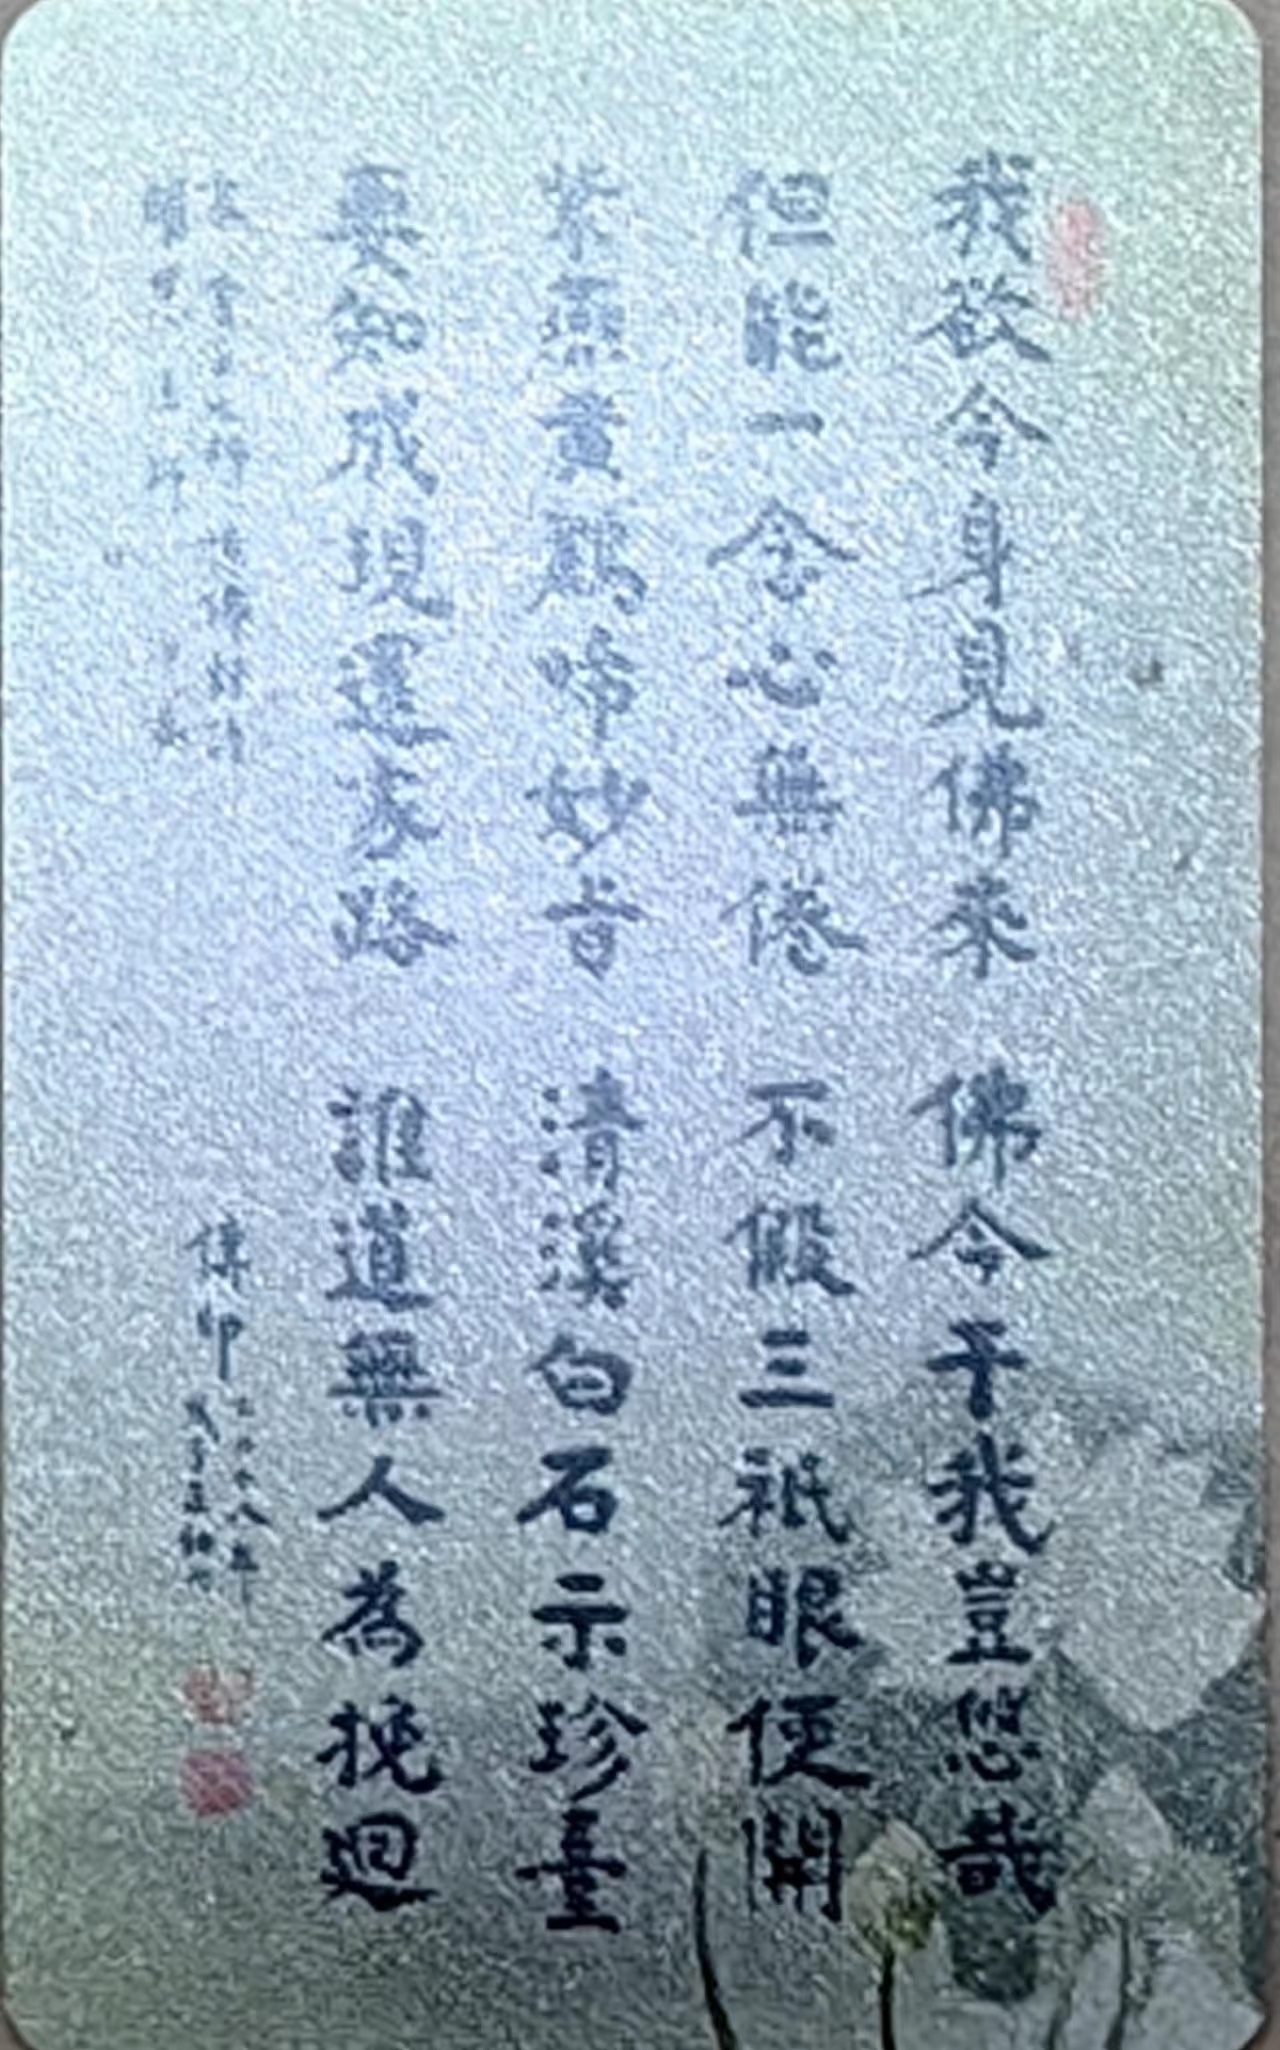 我欲今身見佛來 佛令于我豈悠哉
但能一念心無倦 不假三祇眼便開
紫燕黃鸝啼妙旨 清溪白石示珍臺
要知成現還家路 誰道無人為挽迴
傳印
二〇〇八年